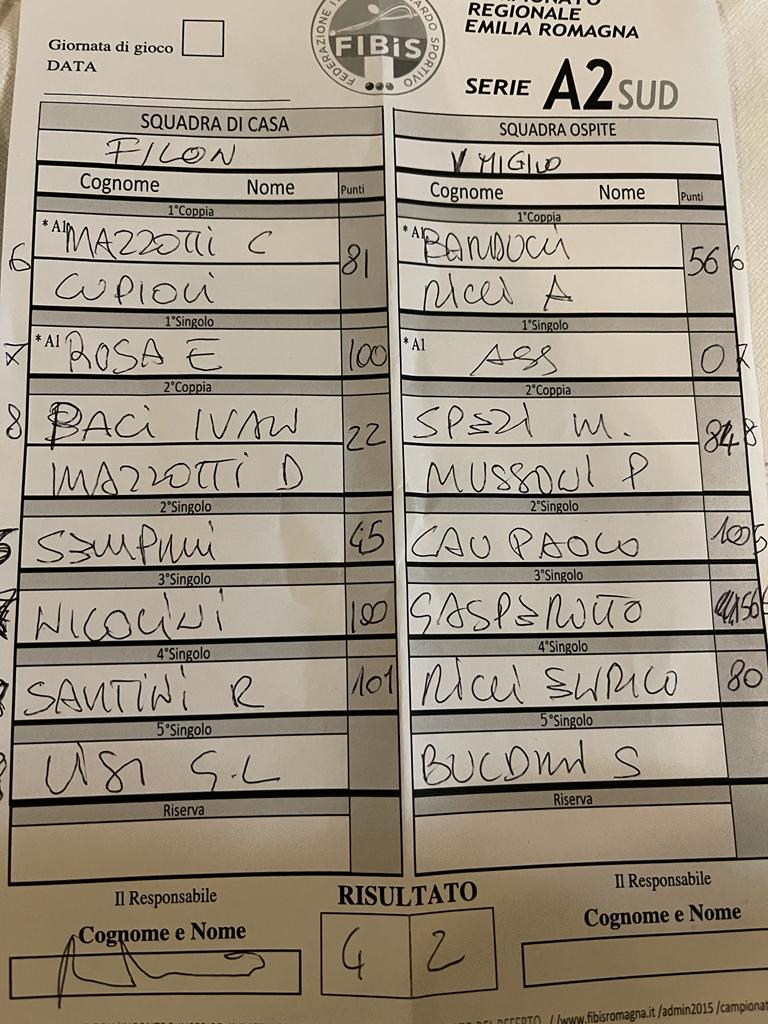 Giornata di gioco
DATA
FIBiS
REGIONALE
EMILIA ROMAGNA
SERIE A2 SUD
SQUADRA DI CASA SQUADRA OSPITE
FILON V MIGLIO
Cognome Nome Punti Cognome Nome Punti
1°Coppia 1°Coppia
6 * A1 MAZZOTTI C 81 * A1 BANDUCCI 56 6
CUPIOLI RICCI A
1°Singolo 1°Singolo
* A1 ROSA E 100 * A1 ASS 0
2°Coppia 2°Coppia
8 BACI IVAN 22 SPEZI M. 84 8
MAZZOTTI D MUSSONI P
2°Singolo 2°Singolo
SEMPRINI 45 CAU PAOLO 100 5
3°Singolo 3°Singolo
NICOLINI 100 GASPEROTTO 56
4°Singolo 4°Singolo
SANTINI R 101 RICCI ENRICO 80
5°Singolo 5°Singolo
UST G.L S
Riserva Riserva
Il Responsabile RISULTATO Il Responsabile
Cognome e Nome 4 2 Cognome e Nome
//www.fibisromagna.it /admin2015 /campionat